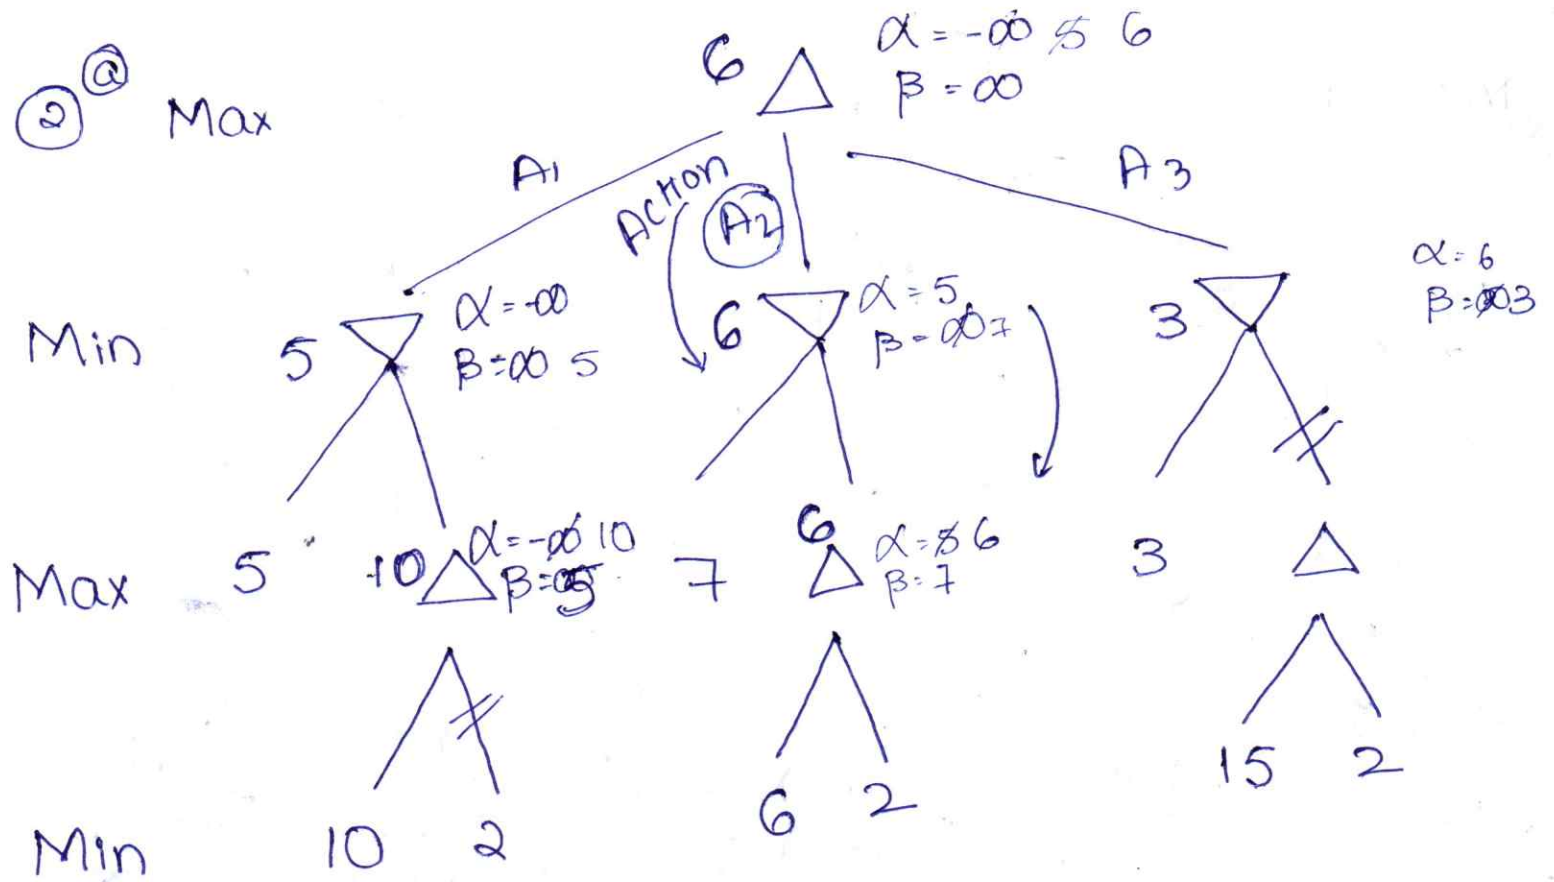 ② ⓐ Max
6 α = -∞ 5 6
β = ∞
A1
Action
A2
A3
Min
5 α = -∞
β = ∞ 5
6 α = 5
β = ∞ 7
3 α = 6
β = ∞ 3
Max
5
10 α = -∞ 10
β = 5
7
6 α = 5 6
β = 7
3
Min
10 2
6 2
15 2